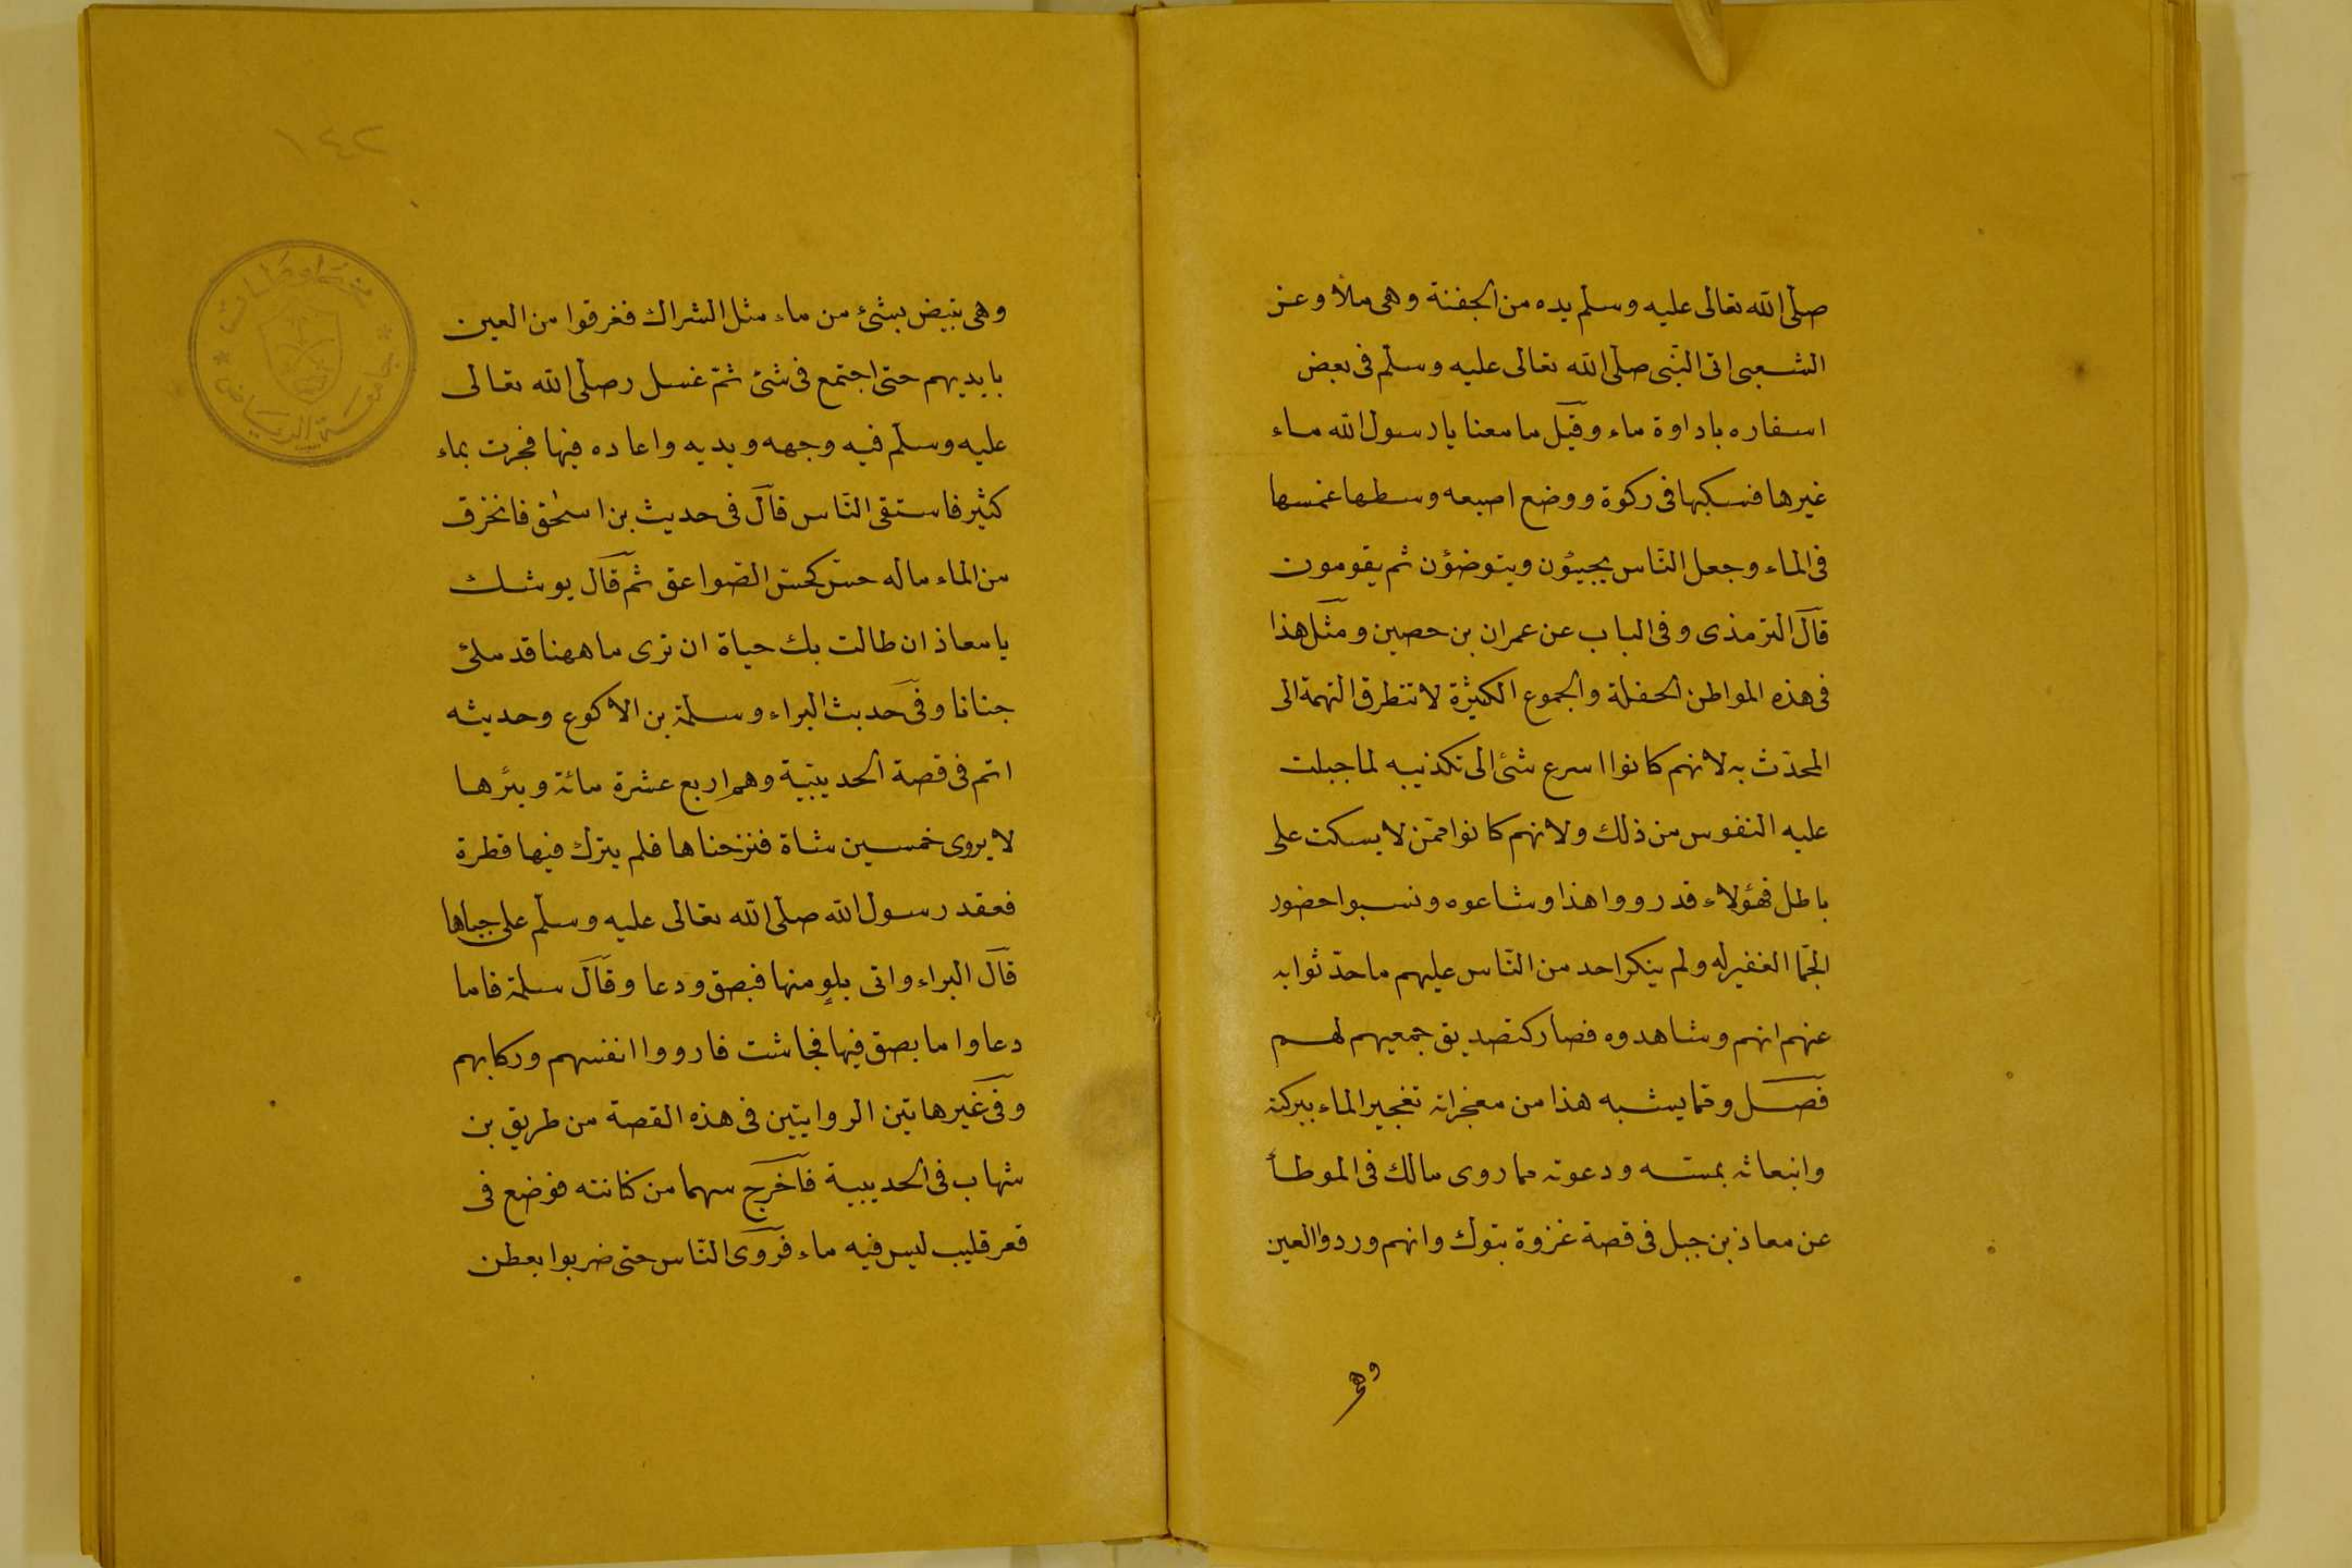 صلّى الله تعالى عليه وسلم يده من الجفنة وهى ملأ وعن
الشعبى اتى النّبى صلّى الله تعالى عليه وسلّم فى بعض
اسفاره باداوة ماء وقيل ما معنا يا رسول الله ماء
غيرها فسكبها فى ركوة ووضع اصبعه وسطها غمسها
فى الماء وجعل النّاس يجيئون ويتوضؤن ثم يقومون
قال الترمذى وفى الباب عن عمران بن حصين ومثل هذا
فى هذه المواطن الحفلة والجموع الكثيرة لا تتطرق التهمة الى
المحدّث به لانهم كانوا اسرع شئ الى تكذيبه لما جبلت
عليه النفوس من ذلك ولانهم كانوا ممّن لا يسكت على
باطل فهؤلاء قد رووا هذا وشاعوه ونسبوا حضور
الجمّا الغفير له ولم ينكر احد من النّاس عليهم ما حدّثوا به
عنهم انهم وشاهدوه فصار كتصديق جمعيهم لهم
فصل وممّا يشبه هذا من معجزاته تفجير الماء ببركته
وانبعاثه بمسّه ودعوته مما روى مالك فى الموطأ
عن معاذ بن جبل فى قصة غزوة تبوك وانهم وردوا العين
وهى
١٤٢
مخطوطات
جامعة الرياض
وهى تبيض بشئ من ماء مثل الشراك فغرقوا من العين
بايديهم حتى اجتمع فى شئ ثمّ غسل رصلّى الله تعالى
عليه وسلّم فيه وجهه ويديه واعاده فيها فجرت بماء
كثير فاستقى النّاس قال فى حديث بن اسحٰق فانخرق
من الماء ماله حسّ كحسّ الصّواعق ثمّ قال يوشك
يا معاذ ان طالت بك حياة ان ترى ما ههنا قد ملئ
جنانا وفى حديث البراء وسلمة بن الاكوع وحديثه
اتم فى قصة الحديبية وهم اربع عشرة مائة وبئرها
لا يروى خمسين شاة فنزحناها فلم يترك فيها قطرة
فعقد رسول الله صلّى الله تعالى عليه وسلّم على جباها
قال البراء واتى بلوٍ منها فبصق ودعا وقال سلمة فاما
دعا واما بصق فيها فجاشت فارووا انفسهم وركابهم
وفى غير هاتين الروايتين فى هذه القصة من طريق بن
شهاب فى الحديبية فاخرج سهما من كنانته فوضع فى
قعر قليب ليس فيه ماء فروى النّاس حتى ضربوا بعطن